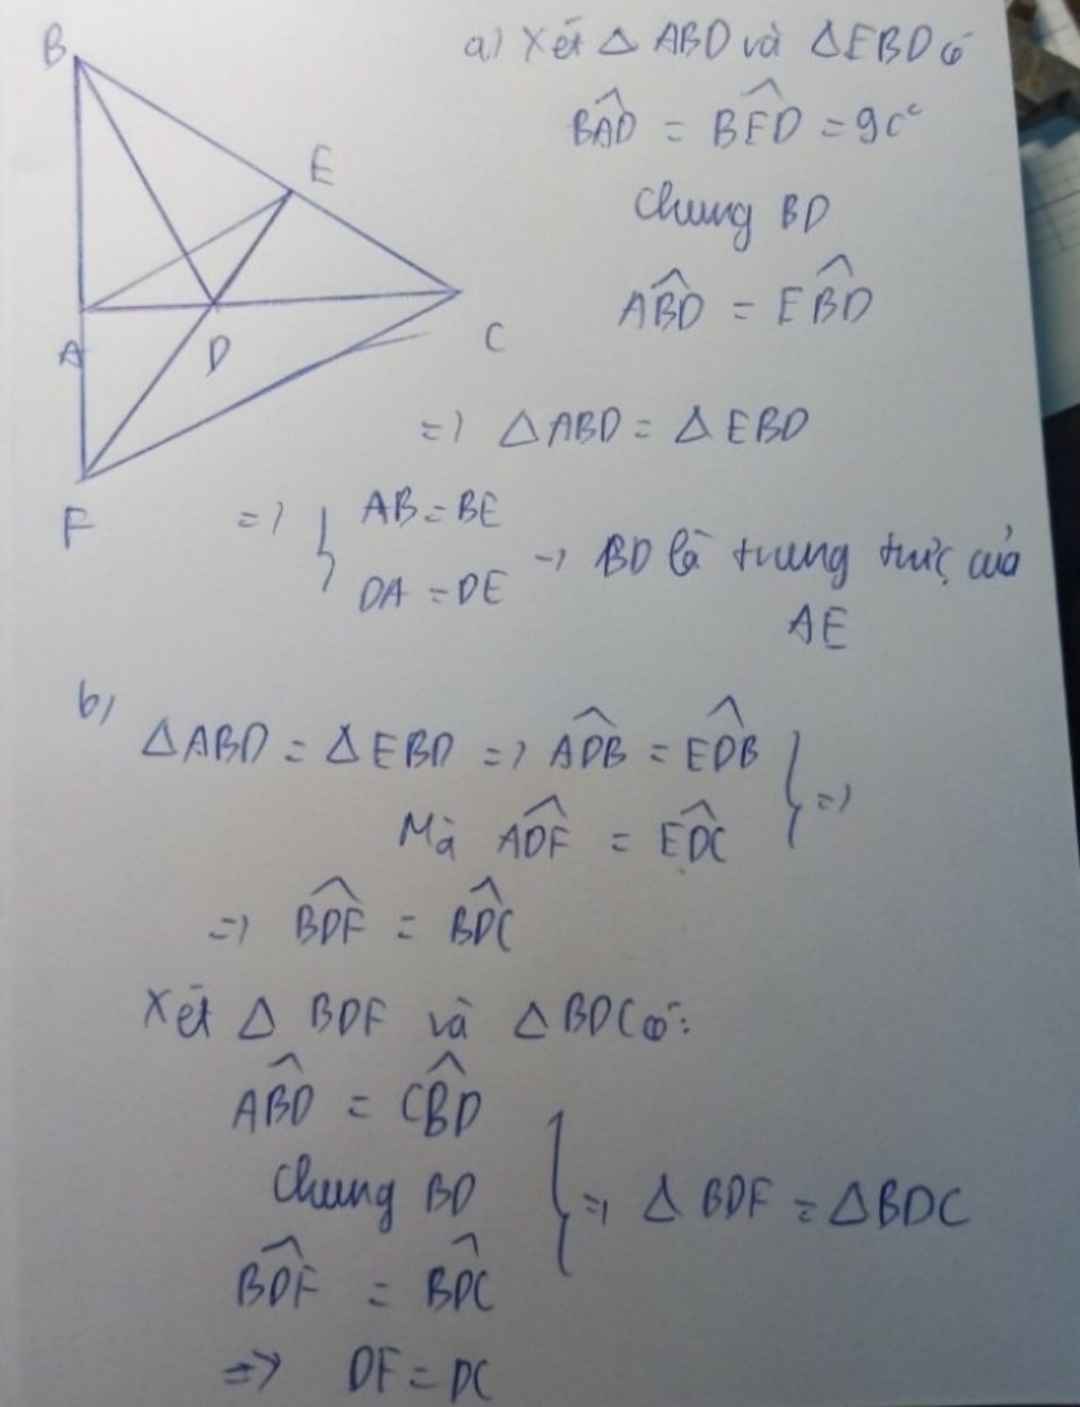 B
E
A
D
C
F
a) Xét △ ABD và △EBD có
\widehat{BAD} = \widehat{BED} = 90°
Chung BD
\widehat{ABD} = \widehat{EBD}
=> △ABD = △EBD
=> { AB = BE
DA = DE -> BD là trung trực của
AE
b)
△ABD = △EBD => \widehat{ADB} = \widehat{EDB}
Mà \widehat{ADF} = \widehat{EDC} } =>
=> \widehat{BDF} = \widehat{BDC}
Xét △ BDF và △BDC có:
\widehat{ABD} = \widehat{CBD}
Chung BD } => △ BDF = △BDC
\widehat{BDF} = \widehat{BDC}
=> DF = DC